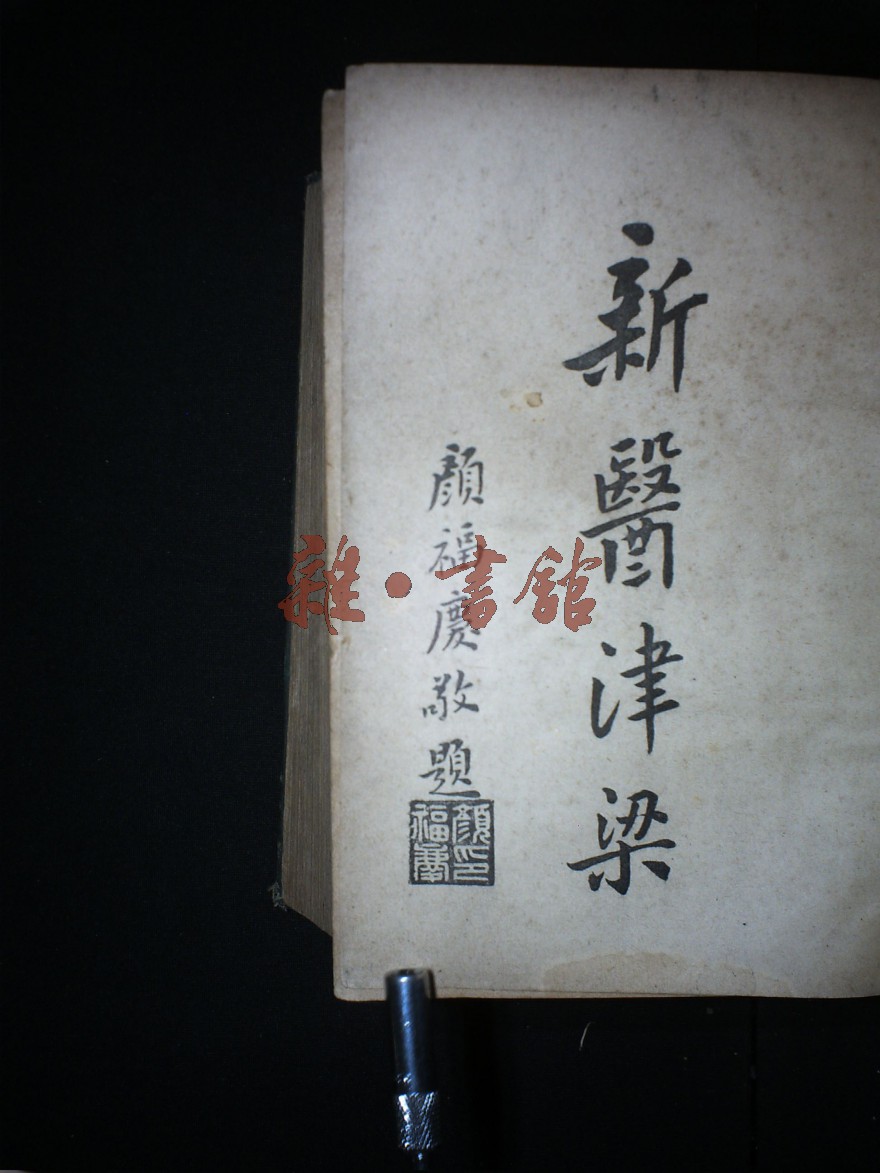 新醫津梁
顏福慶敬題
顏印福慶
雜·書館